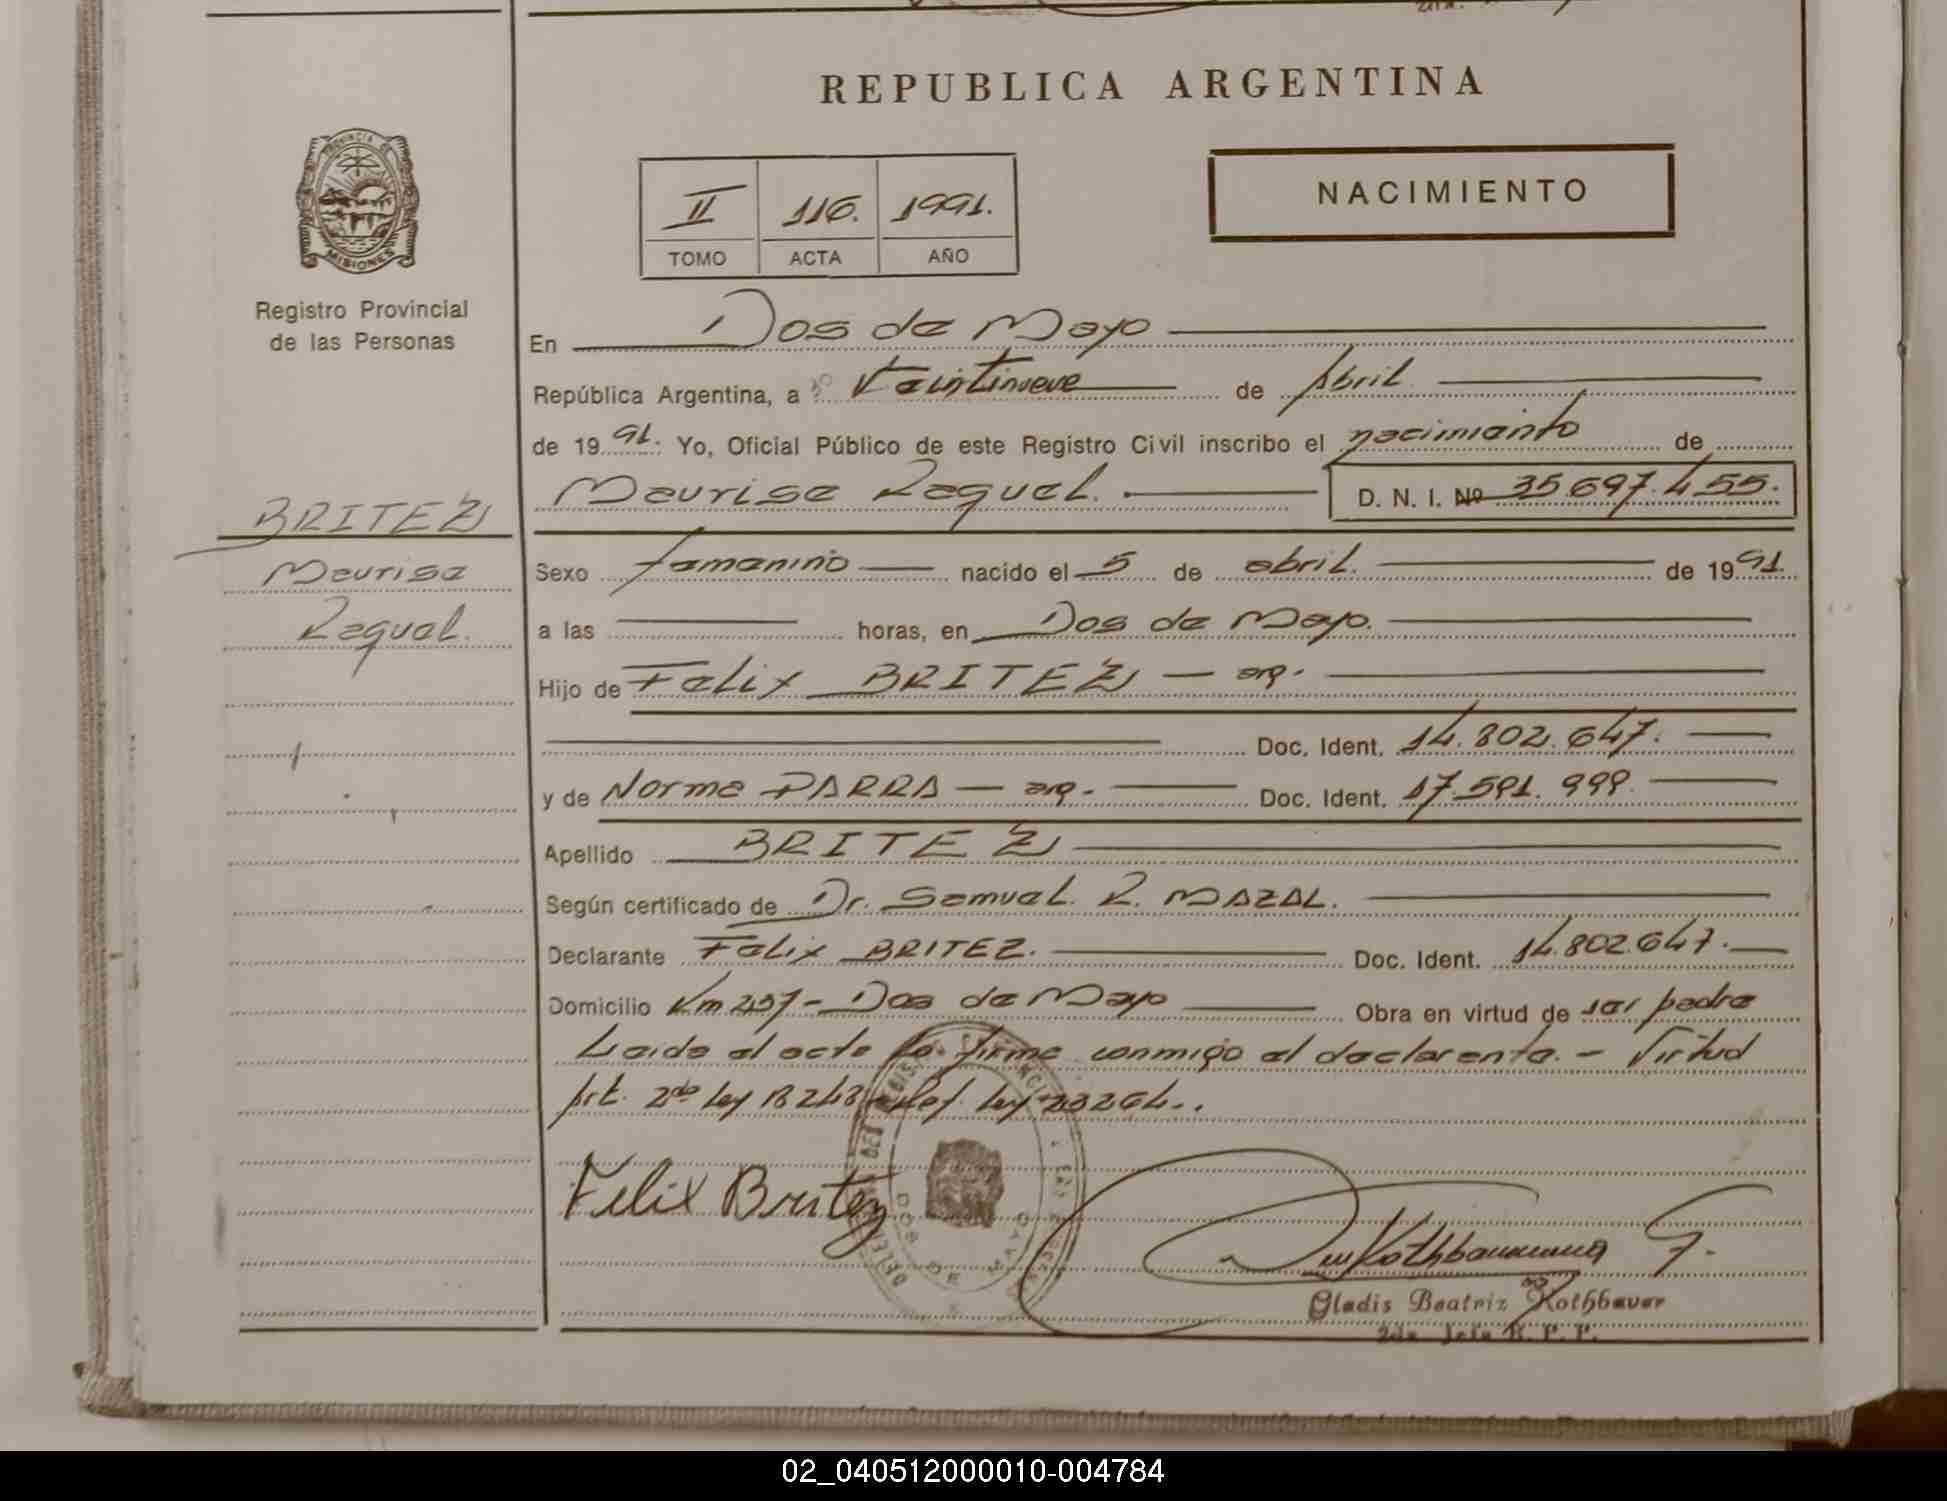 REPUBLICA ARGENTINA
PROVINCIA DE
MISIONES
Registro Provincial
de las Personas
NACIMIENTO
II 116. 1991.
TOMO ACTA AÑO
En Dos de Mayo
República Argentina, a Veintinueve de Abril
de 1991. Yo, Oficial Público de este Registro Civil inscribo el nacimiento de
Maurisa Raquel. D. N. I. Nº 35.697.455.
BRITEZ
Maurisa
Raquel.
Sexo femenino nacido el 5 de abril. de 1991
a las horas, en Dos de Mayo.
Hijo de Felix BRITEZ — arg.
Doc. Ident. 14.802.647.
y de Norma PARRA — arg. Doc. Ident. 17.591.999.
Apellido BRITEZ
Según certificado de Dr. Samuel. R. MAZAL.
Declarante Felix BRITEZ. Doc. Ident. 14.802.647.
Domicilio Km 237 - Dos de Mayo Obra en virtud de ser padre
Leida el acta la firma conmigo el declarante. - Virtud
Art. 2do Ley 18248 - Ley 23264..
Felix Britez
DOS DE MAYO
Rothbauer G.
Gladis Beatriz Rothbauer
2da Jefa R. P. P.
02_040512000010-004784